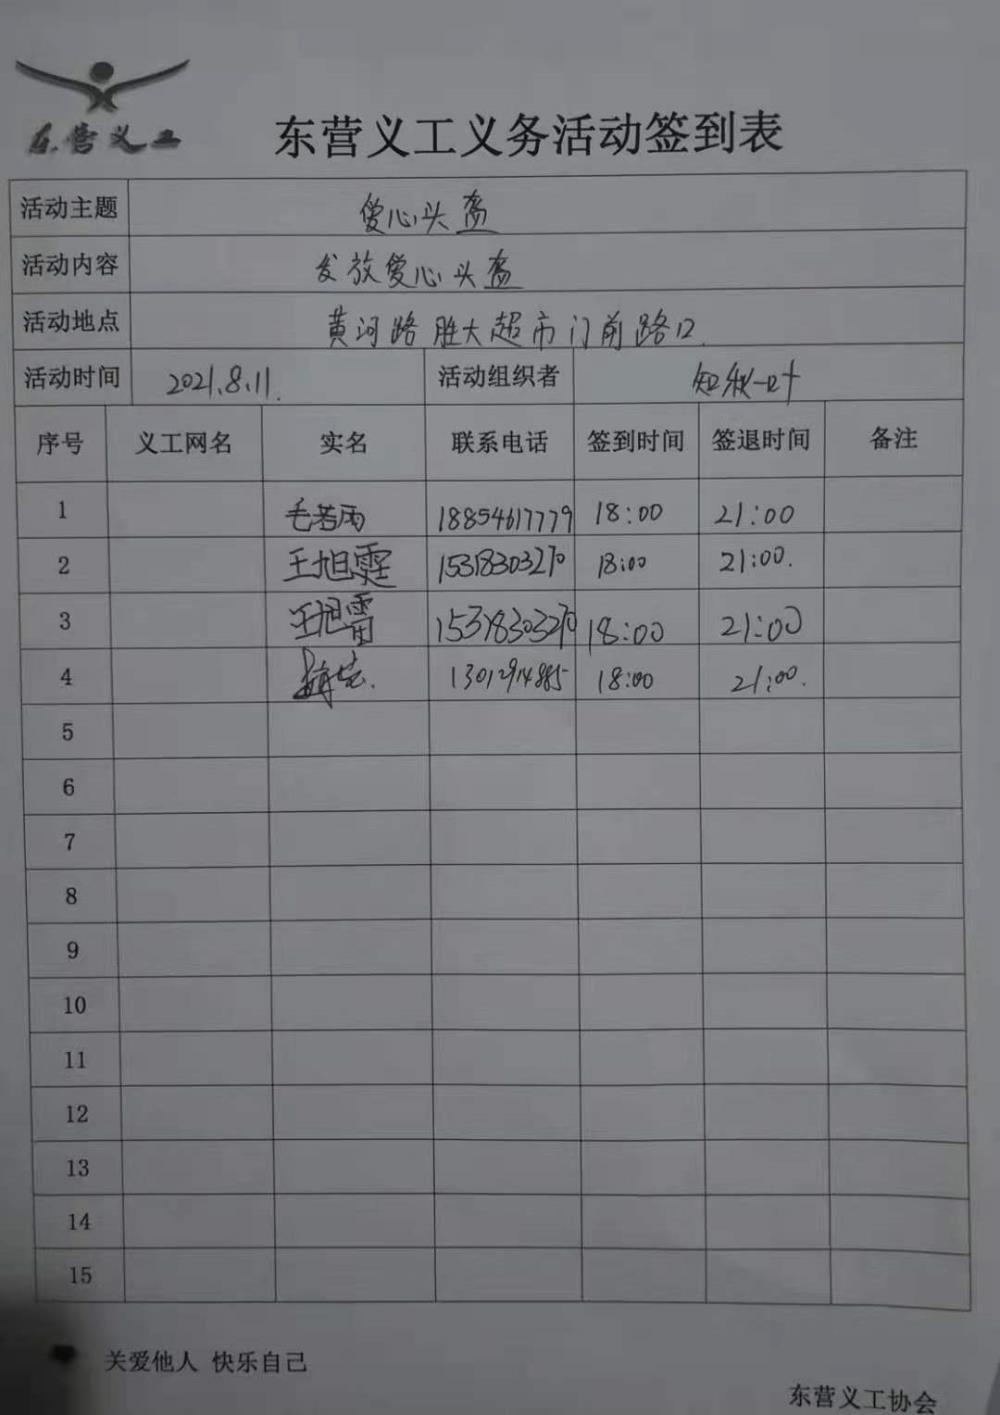 东营义工
东营义工义务活动签到表
活动主题 爱心头盔
活动内容 发放爱心头盔
活动地点 黄河路胜大超市门前路口.
活动时间 2021.8.11. 活动组织者 知秋一叶
序号 义工网名 实名 联系电话 签到时间 签退时间 备注
1 毛若雨 18854617779 18:00 21:00
2 王旭霆 15318303270 18:00 21:00.
3 王旭雷 15318303270 18:00 21:00
4 13012914885 18:00 21:00.
5
6
7
8
9
10
11
12
13
14
15
关爱他人 快乐自己
东营义工协会